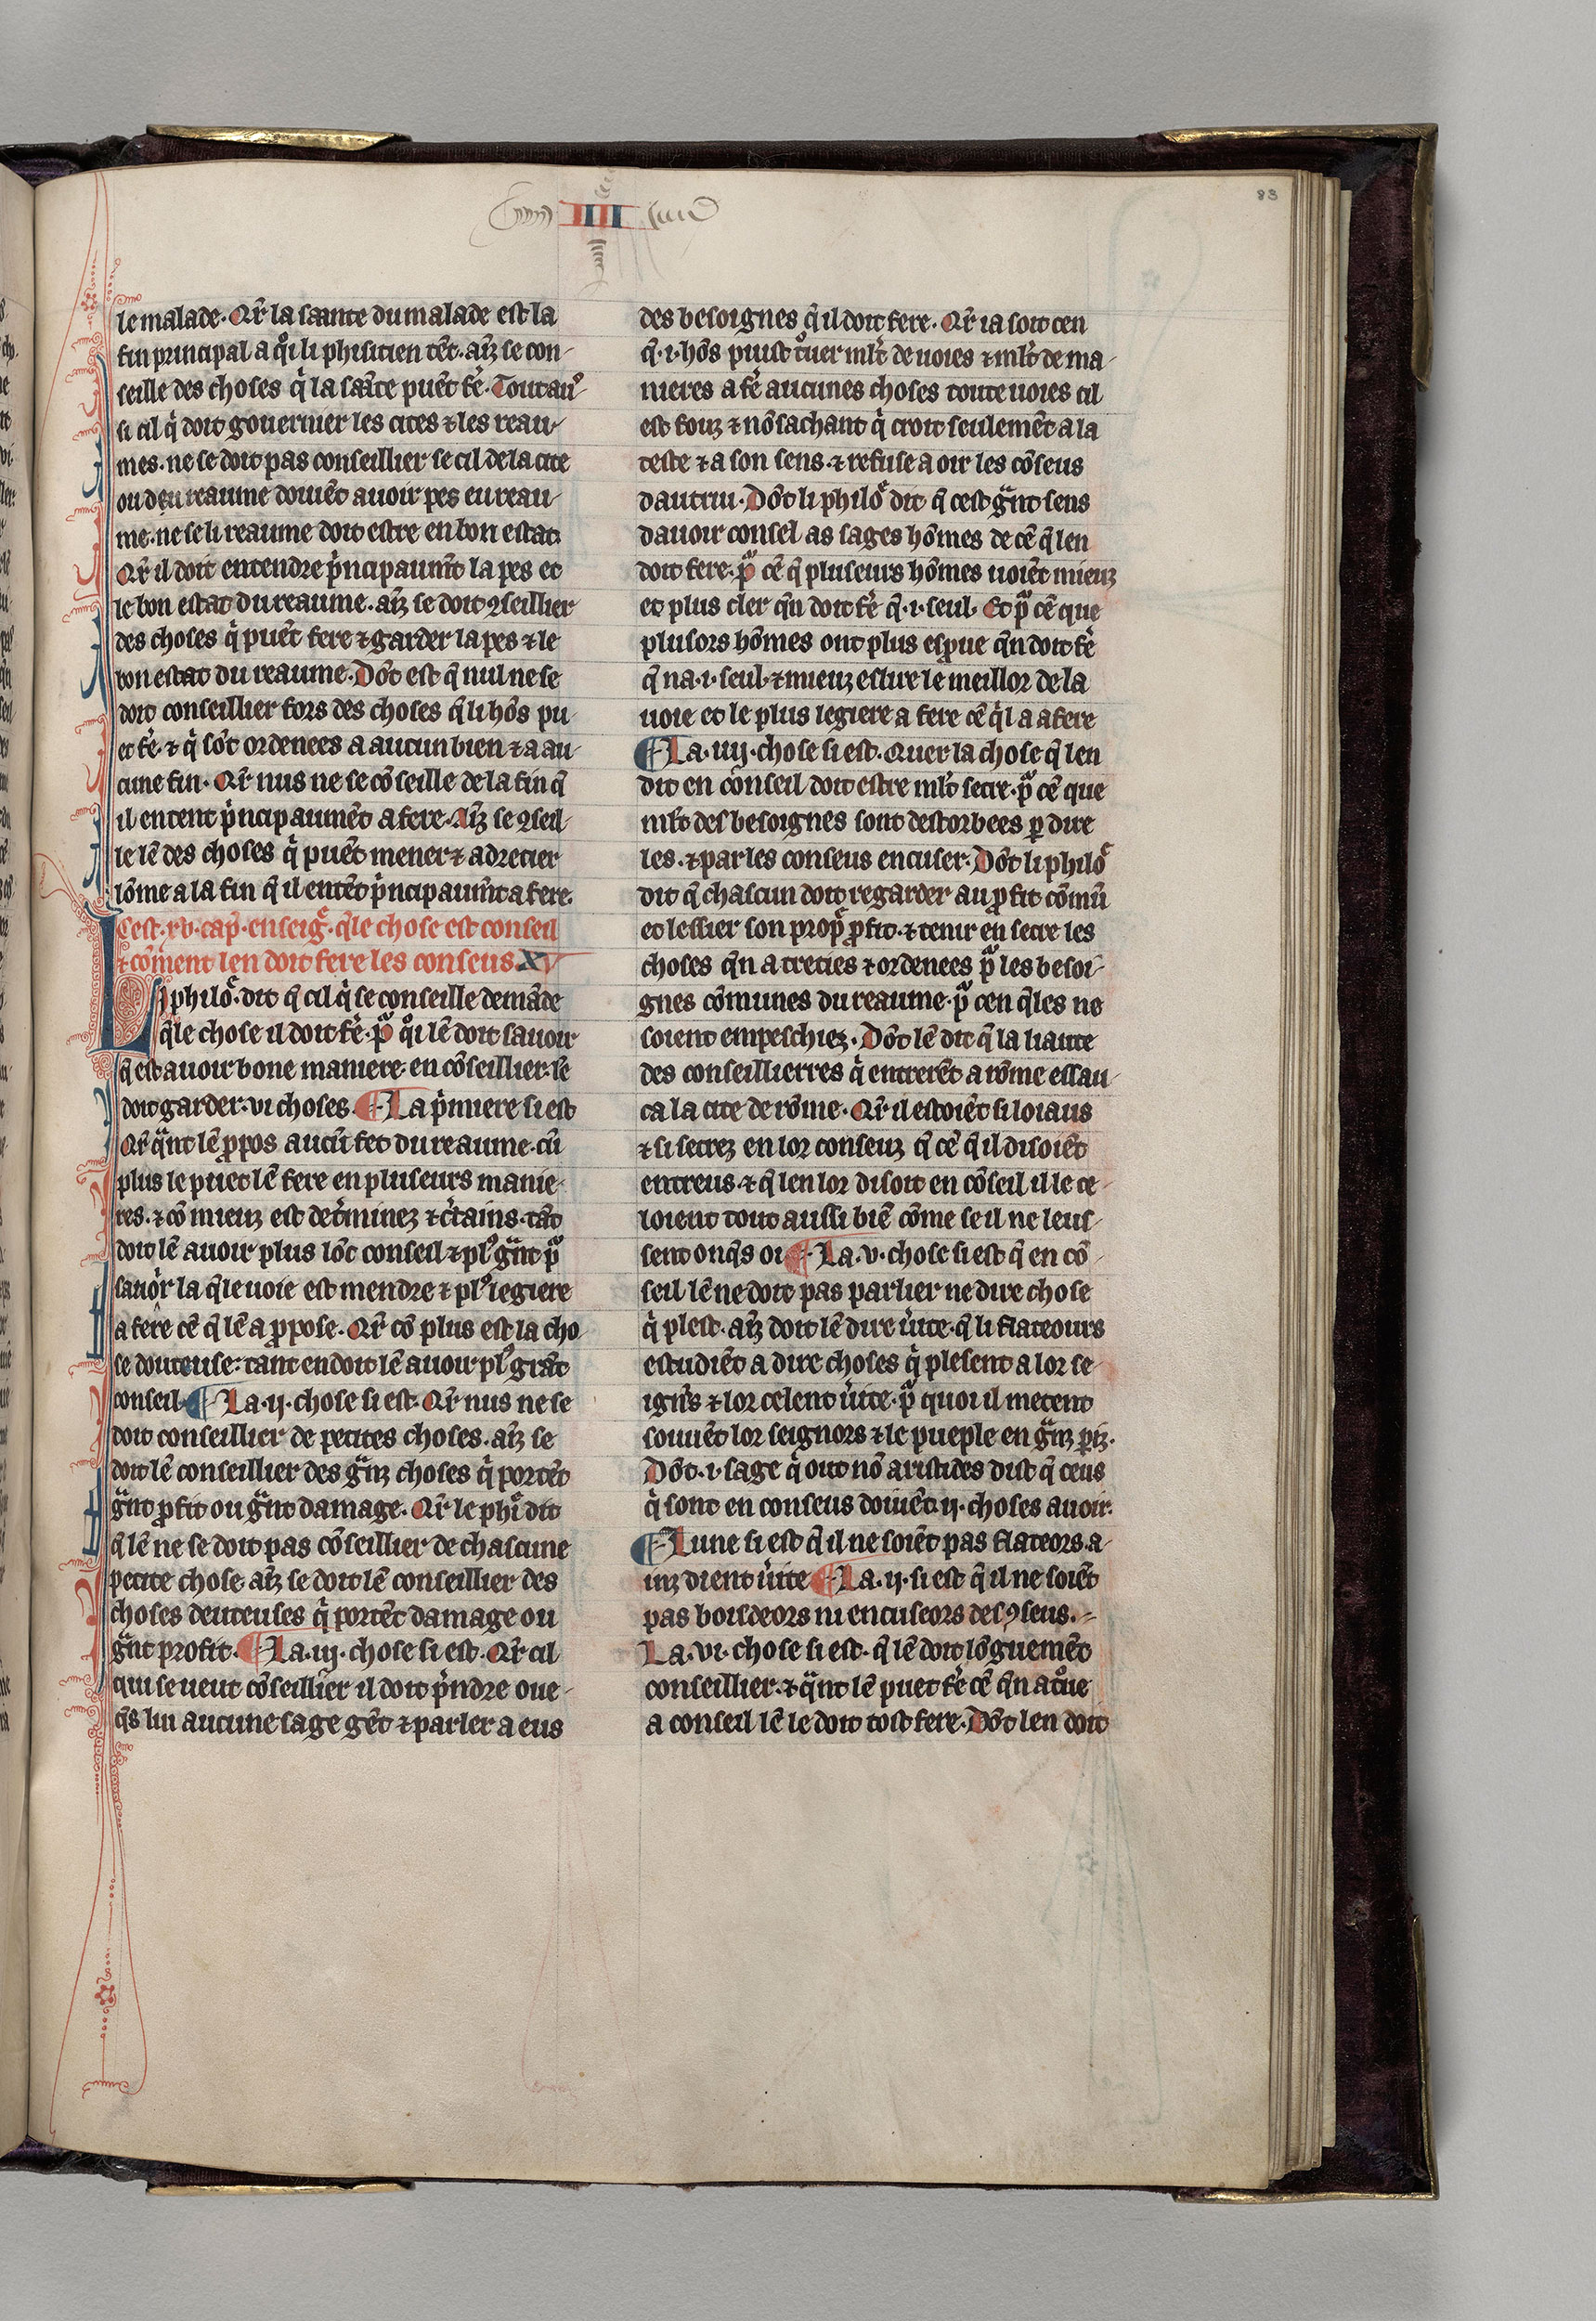 83
IIII
le malade. Qr̄ la sante du malade est la
fin principal a qͦi li phisicien tēt. aīz se con-
seille des choses qͥ la sāte puēt fē. Tout auͦ-
si cil qͥ doit gouerner les cites ⁊ les reau-
mes. ne se doit pas conseillier se cil de la cite
ou du reaume doiuēt auoir pes eu reau-
me. ne se li reaume doit estre en bon estat.
Qr̄ il doit entendre pͥncipaumt̄ la pes et
le bon estat du reaume. aīz se doit ꝯseillier
des choses qͥ puēt fere ⁊ garder la pes ⁊ le
bon estat du reaume. Dōt est q̄ nul ne se
doit conseillier fors des choses q̄ li hōs pu-
et fē. ⁊ qͥ sōt ordenees a aucun bien ⁊ a au-
cune fin. Qr̄ nus ne se cōseille de la fin q̄
il entent pͥncipaumēt a fere. Aīz se ꝯseil-
le lē des choses qͥ puēt mener ⁊ adrecier
lōme a la fin q̄ il entēt pͥncipaumt̄ a fere.
Cest .xv. cap̄. enseiḡ. q̄le chose est conseil
⁊ cōment len doit fere les conseus. XV
Li philoͤ. dit q̄ cil qͥ se conseille demāde
q̄le chose il doit fē. pᷓ qͦi lē doit sauoir
q̄ est auoir bone maniere en cōseillier. lē
doit garder .vi choses. ¶ La pͥmiere si est
Qr̄ qᷓnt lē ꝓpos aucū fet du reaume. cū
plus le puet lē fere en pluseurs manie-
res. ⁊ cō mieuz est det̄minez ⁊ c̄tains. tāt
doit lē auoir plus lōc conseil ⁊ plꝰ gᷓnt pᷓ
sauoͥr la q̄le uoie est mendre ⁊ plꝰ legiere
a fere cē q̄ lē a ꝓpose. Qr̄ cō plus est la cho-
se douteuse: tant en doit lē auoir plꝰ grāt
conseil. ¶ La .ij. chose si est. Qr̄ nus ne se
doit conseillier de petites choses. aīz se
doit lē conseillier des gᷓnz choses qͥ portēt
gᷓnt ꝓfit ou gᷓnt damage. Qr̄ le phͤi dit
q̄ lē ne se doit pas cōseillier de chascune
petite chose aīz se doit lē conseillier des
choses deuteuses qͥ portēt damage ou
gᷓnt profit. ¶ La .iij. chose si est. Qr̄ cil
qui se ueut cōseillier il doit pͥndre oue-
q̄s lui aucune sage gēt ⁊ parler a eus
des besoignes q̄ il doit fere. Qr̄ ia soit cen
q̄ .i. hōs puist tͦuer mlt̄ de uoies ⁊ mlt̄ de ma-
nieres a fē aucunes choses toute uoies cil
est fouz ⁊ nō sachant qͥ croit seulemēt a la
teste ⁊ a son sens. ⁊ refuse a oir les cōseus
dautrui. Dōt li philoͤ dit q̄ cest gᷓnt sens
dauoir consel as sages hōmes de cē q̄ len
doit fere. pᷓ cē q̄ pluseurs hōmes uoiēt mieuz
et plus cler qn̄ doit fē q̄ .i. seul. Et pᷓ cē que
plusors hōmes ont plus esprue qn̄ doit fē
q̄ na .i. seul. ⁊ mieuz eslire le meillor de la
uoie et le plus legiere a fere cē qͥl a a fere
¶ La .iiij. chose si est. Quer la chose q̄ len
dit en conseil doit estre mlt̄ secre. pᷓ cē que
mlt̄ des besoignes sont destorbees ꝑ dire
les. ⁊ par les conseus encuser. Dōt li philoͤ
dit q̄ chascun doit regarder au ꝓfit cōmū
et lessier son propͤ ꝓfit. ⁊ tenir en secre les
choses qn̄ a treties ⁊ ordenees pᷓ les besoi-
gnes cōmunes du reaume. pᷓ cen q̄les ne
soient empeschiez. Dōt lē dit q̄ la liaute
des conseillierres qͥ entrerēt a rōme essau-
ca la cite de rōme. Qr̄ il estoiēt si loiaus
⁊ si secrez en lor conseuz q̄ cē q̄ il disoiēt
entreus ⁊ q̄ len lor disoit en cōseil il le ce-
loient tout aussi biē cōme se il ne leus-
sent onq̄s oi ¶ La .v. chose si est q̄ en cō-
seil lē ne doit pas parlier ne dire chose
qͥ plest. aīz doit lē dire uͥite. q̄ li flateours
estudiēt a dire choses qͥ plesent a lor se-
ign̄s ⁊ lor celent uͥite. pᷓ quoi il metent
souuēt lor seignors ⁊ le pueple en gᷓnz ꝑiz.
Dōt .i. sage qͥ out nō aristides dist q̄ ceus
qͥ sont en conseus doiuēt .ij. choses auoir.
¶ Lune si est q̄ il ne soiēt pas flateors. a-
inz dient uͥite ¶ La .ij. si est q̄ il ne soiēt
pas boisdeors ni encuseors des ꝯseus.
La .vi. chose si est. q̄ lē doit lōguemēt
conseillier. ⁊ qᷓnt lē puet fē cē qn̄ a tͦue
a conseil lē le doit tost fere. Dōt len doit